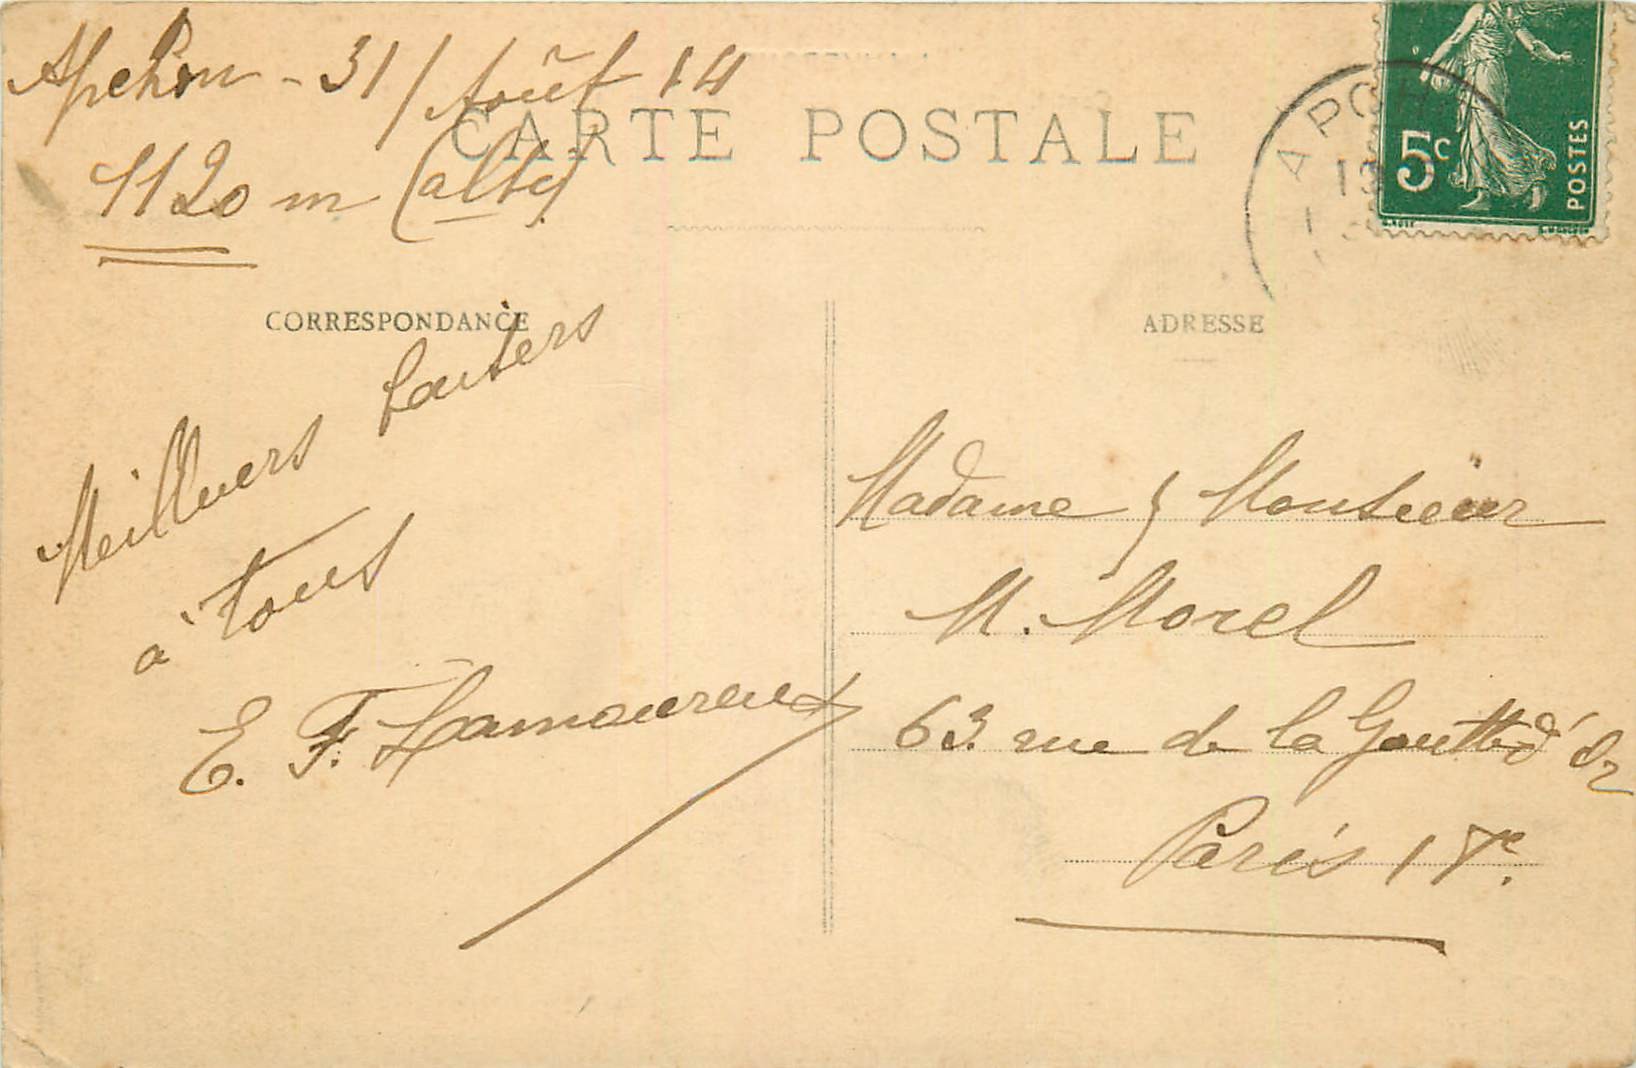 Apchon - 31/Août 14
1120 m (alte)
CARTE POSTALE
APCH
5c
POSTES
CORRESPONDANCE
ADRESSE
Meilleurs baisers
à tous
E. F. Lamoureux
Madame & Monsieur
M. Morel
63 rue de la Goutte d'Or
Paris